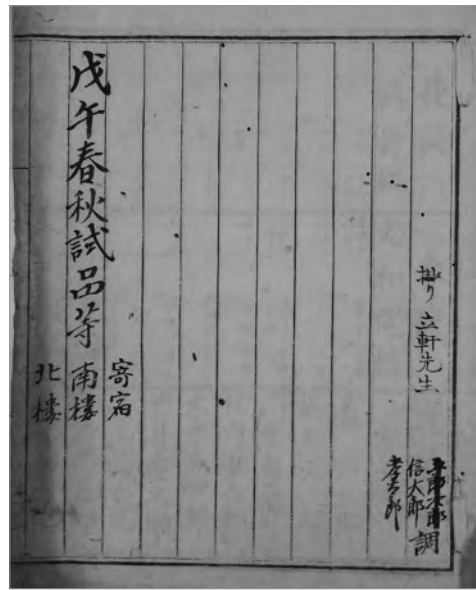 掛り 立軒先生
信太郎
調
寄宿
戊午春秋試品等 南樓
北樓